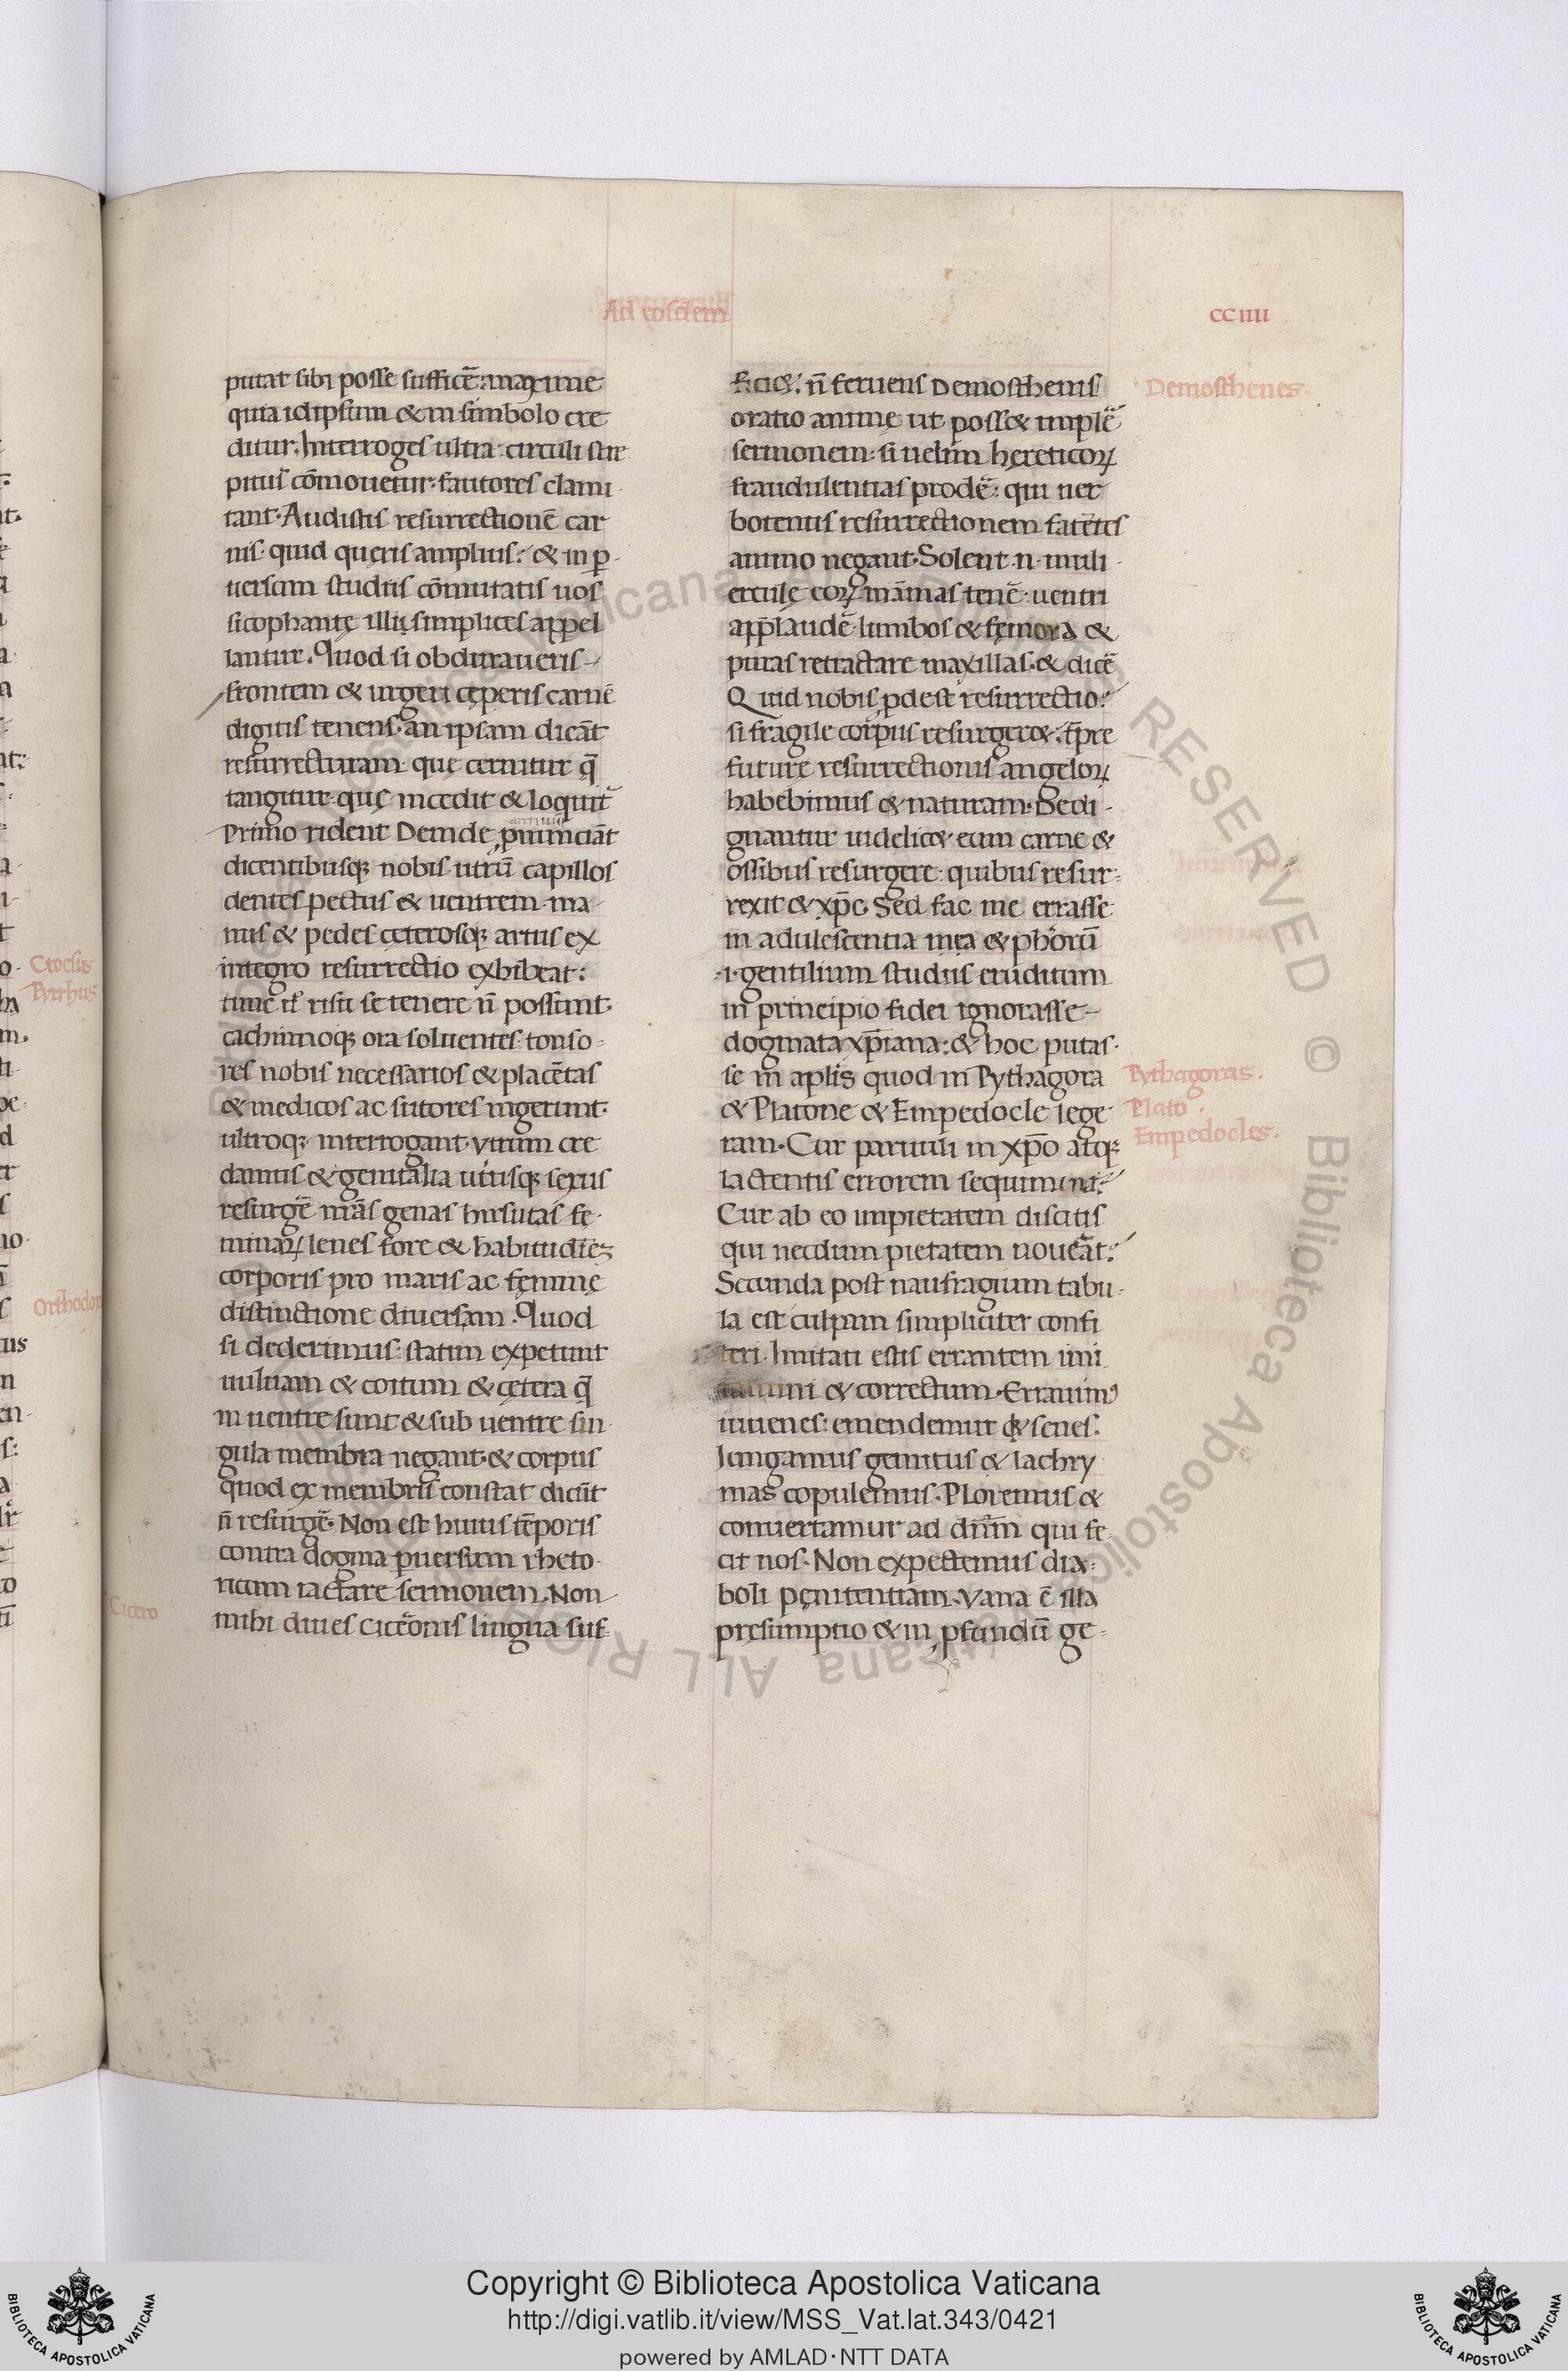 Ad eosdem
cciiii
putat sibi posse sufficē: maxime
quia idipsum & in simbolo cre
ditur. Interroges ultra: circuli stre
pitus cōmouetur. fautores clami
tant. Audistis resurrectionē car
nis. quid queris amplius? & in p̱
uersam studiis cōmutatis uos
sicophantę illi simplices appel
lantur. Quod si obduraueris
frontem & urgeri cęperis carnē
digitis tenens. an ipsam dicāt
resurrecturam quę cernitur q̄
tangitur quę incedit & loquit᷑
Primo rident Deinde p̱nunciāt
dicentibusq; nobis utrū capillos
dentes pectus & uentrem ma
nus & pedes cęterosq; artus ex
integro resurrectio exhibeat:
risu se tenere n̄ possunt.
cachinnoq; ora soluentes tonso
res nobis necessarios & placētas
& medicos ac sutores ingerunt.
ultroq; interrogant. Vtrum cre
damus & genitalia utriusq; sexus
resurgē nr̄as genas hirsutas fę
minaꝝ lenes fore & habitudinē
corporis pro maris ac fęminę
distinctione diuersam. Quod
si dederimus: statim expetunt
uuluam & coitum & cętera q̄
in uentre sunt & sub uentre sin
gula membra negant. & corpus
quod ex membris constat dicūt
n̄ resurgē. Non est huius tēporis
contra dogma p̱uersum rheto
ricum iactare sermonem. Non
mihi diues cicēonis lingua suf
Cicero
ficiet. n̄ feruens Demosthenis
oratio animę ut poss& implē
sermonem: si uelim hęreticoꝝ
fraudulentias prodē: qui uer
botenus resurrectionem fatētes
animo negant. Solent .n. muli
erculę eoꝝ māmas tenē. uentri
applaudē. lumbos & fęmora &
puras retractare maxillas. & dicē
Quid nobis p̱dest resurrectio?
si fragile corpus resurger&? 
futurę resurrectionis angeloꝝ
habebimus & naturam. Dedi
gnantur uidelic& cum carne &
ossibus resurgere: quibus resur
rexit & xp̄c. Sed fac me errasse
in adulescentia mea & phōrū
.i. gentilium studiis eruditum
in principio fidei ignorasse
dogmata xp̄iana: & hoc putas
se in aplis quod in Pythagora
& Platone & Empedocle lege
ram. Cur paruuli in xp̄o atq;
lactentis errorem sequimini?
Cur ab eo impietatem discitis
qui necdum pietatem nouēat?
Secunda post naufragium tabu
la est culpam simpliciter confi
teri. Imitati estis errantem imi
tamini & correctum. Errauimꝰ
iuuenes: emendemur & senes.
Iungamus gemitus & lachry
mas copulemus. Ploremus &
conuertamur ad dn̄m qui fe
cit nos. Non expectemus dia
boli pęnitentiam. Vana ē illa
pręsumptio & in p̱fundū ge
Demosthenes.
Pythagoras.
Plato.
Empedocles.
Croesus
Pyrrhus
Orthodox
Copyright © Biblioteca Apostolica Vaticana
http://digi.vatlib.it/view/MSS_Vat.lat.343/0421
powered by AMLAD·NTT DATA
BIBLIOTECA APOSTOLICA VATICANA
BIBLIOTECA APOSTOLICA VATICANA